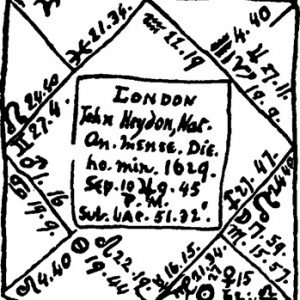 ♓ 21.34.
♒ 22.19
4.40
♌ 24.40
♊ 27.4.
♂ 1.16
♋ 19.9.
♑ 19.9.
27.11.
LONDON
John Heydon, Nat.
An. Mense. Die.
ho. min. 1629.
Sep. 10 ♃ 9.45
P. M.
Sub. Lat. 51.32'
♐ 27.47.
24.40
7.59.
M. 15.57.
♌ 4.40
19.44
♌ 22.19
16.15.
21.34.
♀ 15